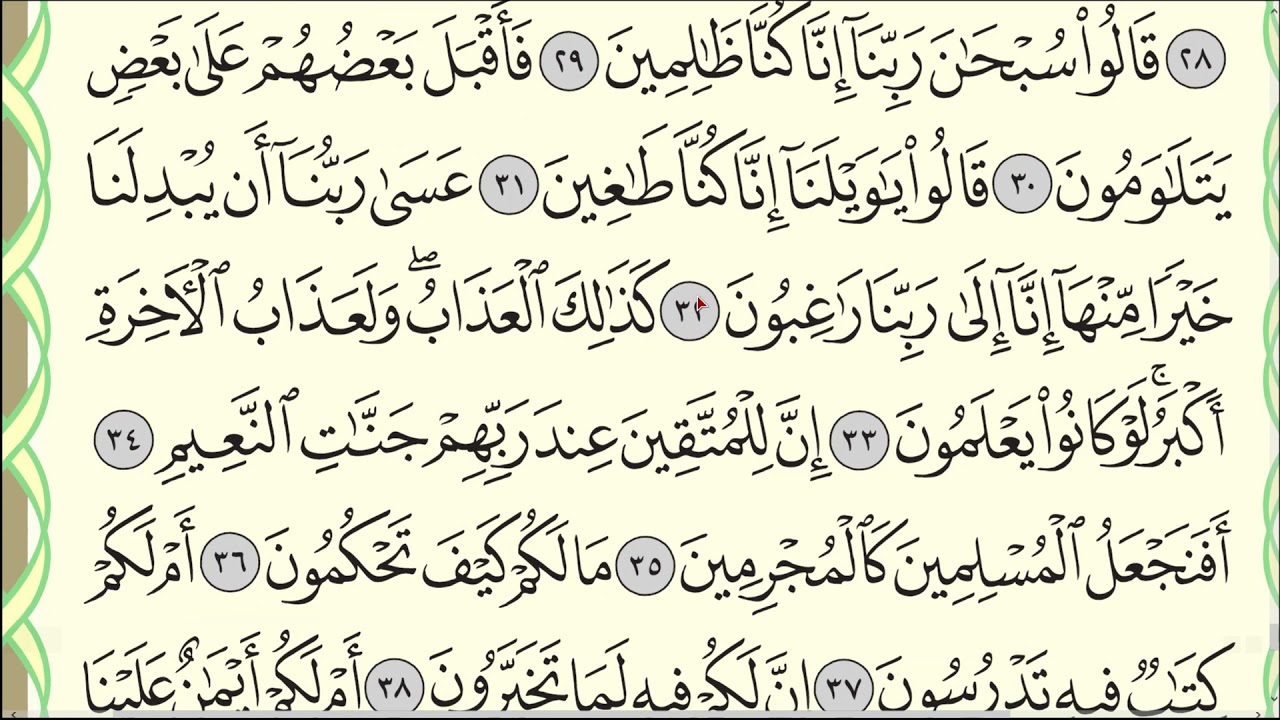 ٢٨ قَالُوا۟ سُبْحَـٰنَ رَبِّنَآ إِنَّا كُنَّا ظَـٰلِمِينَ ٢٩ فَأَقْبَلَ بَعْضُهُمْ عَلَىٰ بَعْضٍ
يَتَلَـٰوَمُونَ ٣٠ قَالُوا۟ يَـٰوَيْلَنَآ إِنَّا كُنَّا طَـٰغِينَ ٣١ عَسَىٰ رَبُّنَآ أَن يُبْدِلَنَا
خَيْرًا مِّنْهَآ إِنَّآ إِلَىٰ رَبِّنَا رَٰغِبُونَ ٣٢ كَذَٰلِكَ ٱلْعَذَابُ ۖ وَلَعَذَابُ ٱلْـَٔاخِرَةِ
أَكْبَرُ ۚ لَوْ كَانُوا۟ يَعْلَمُونَ ٣٣ إِنَّ لِلْمُتَّقِينَ عِندَ رَبِّهِمْ جَنَّـٰتِ ٱلنَّعِيمِ ٣٤
أَفَنَجْعَلُ ٱلْمُسْلِمِينَ كَٱلْمُجْرِمِينَ ٣٥ مَا لَكُمْ كَيْفَ تَحْكُمُونَ ٣٦ أَمْ لَكُمْ
كِتَـٰبٌ فِيهِ تَدْرُسُونَ ٣٧ إِنَّ لَكُمْ فِيهِ لَمَا تَخَيَّرُونَ ٣٨ أَمْ لَكُمْ أَيْمَـٰنٌ عَلَيْنَا